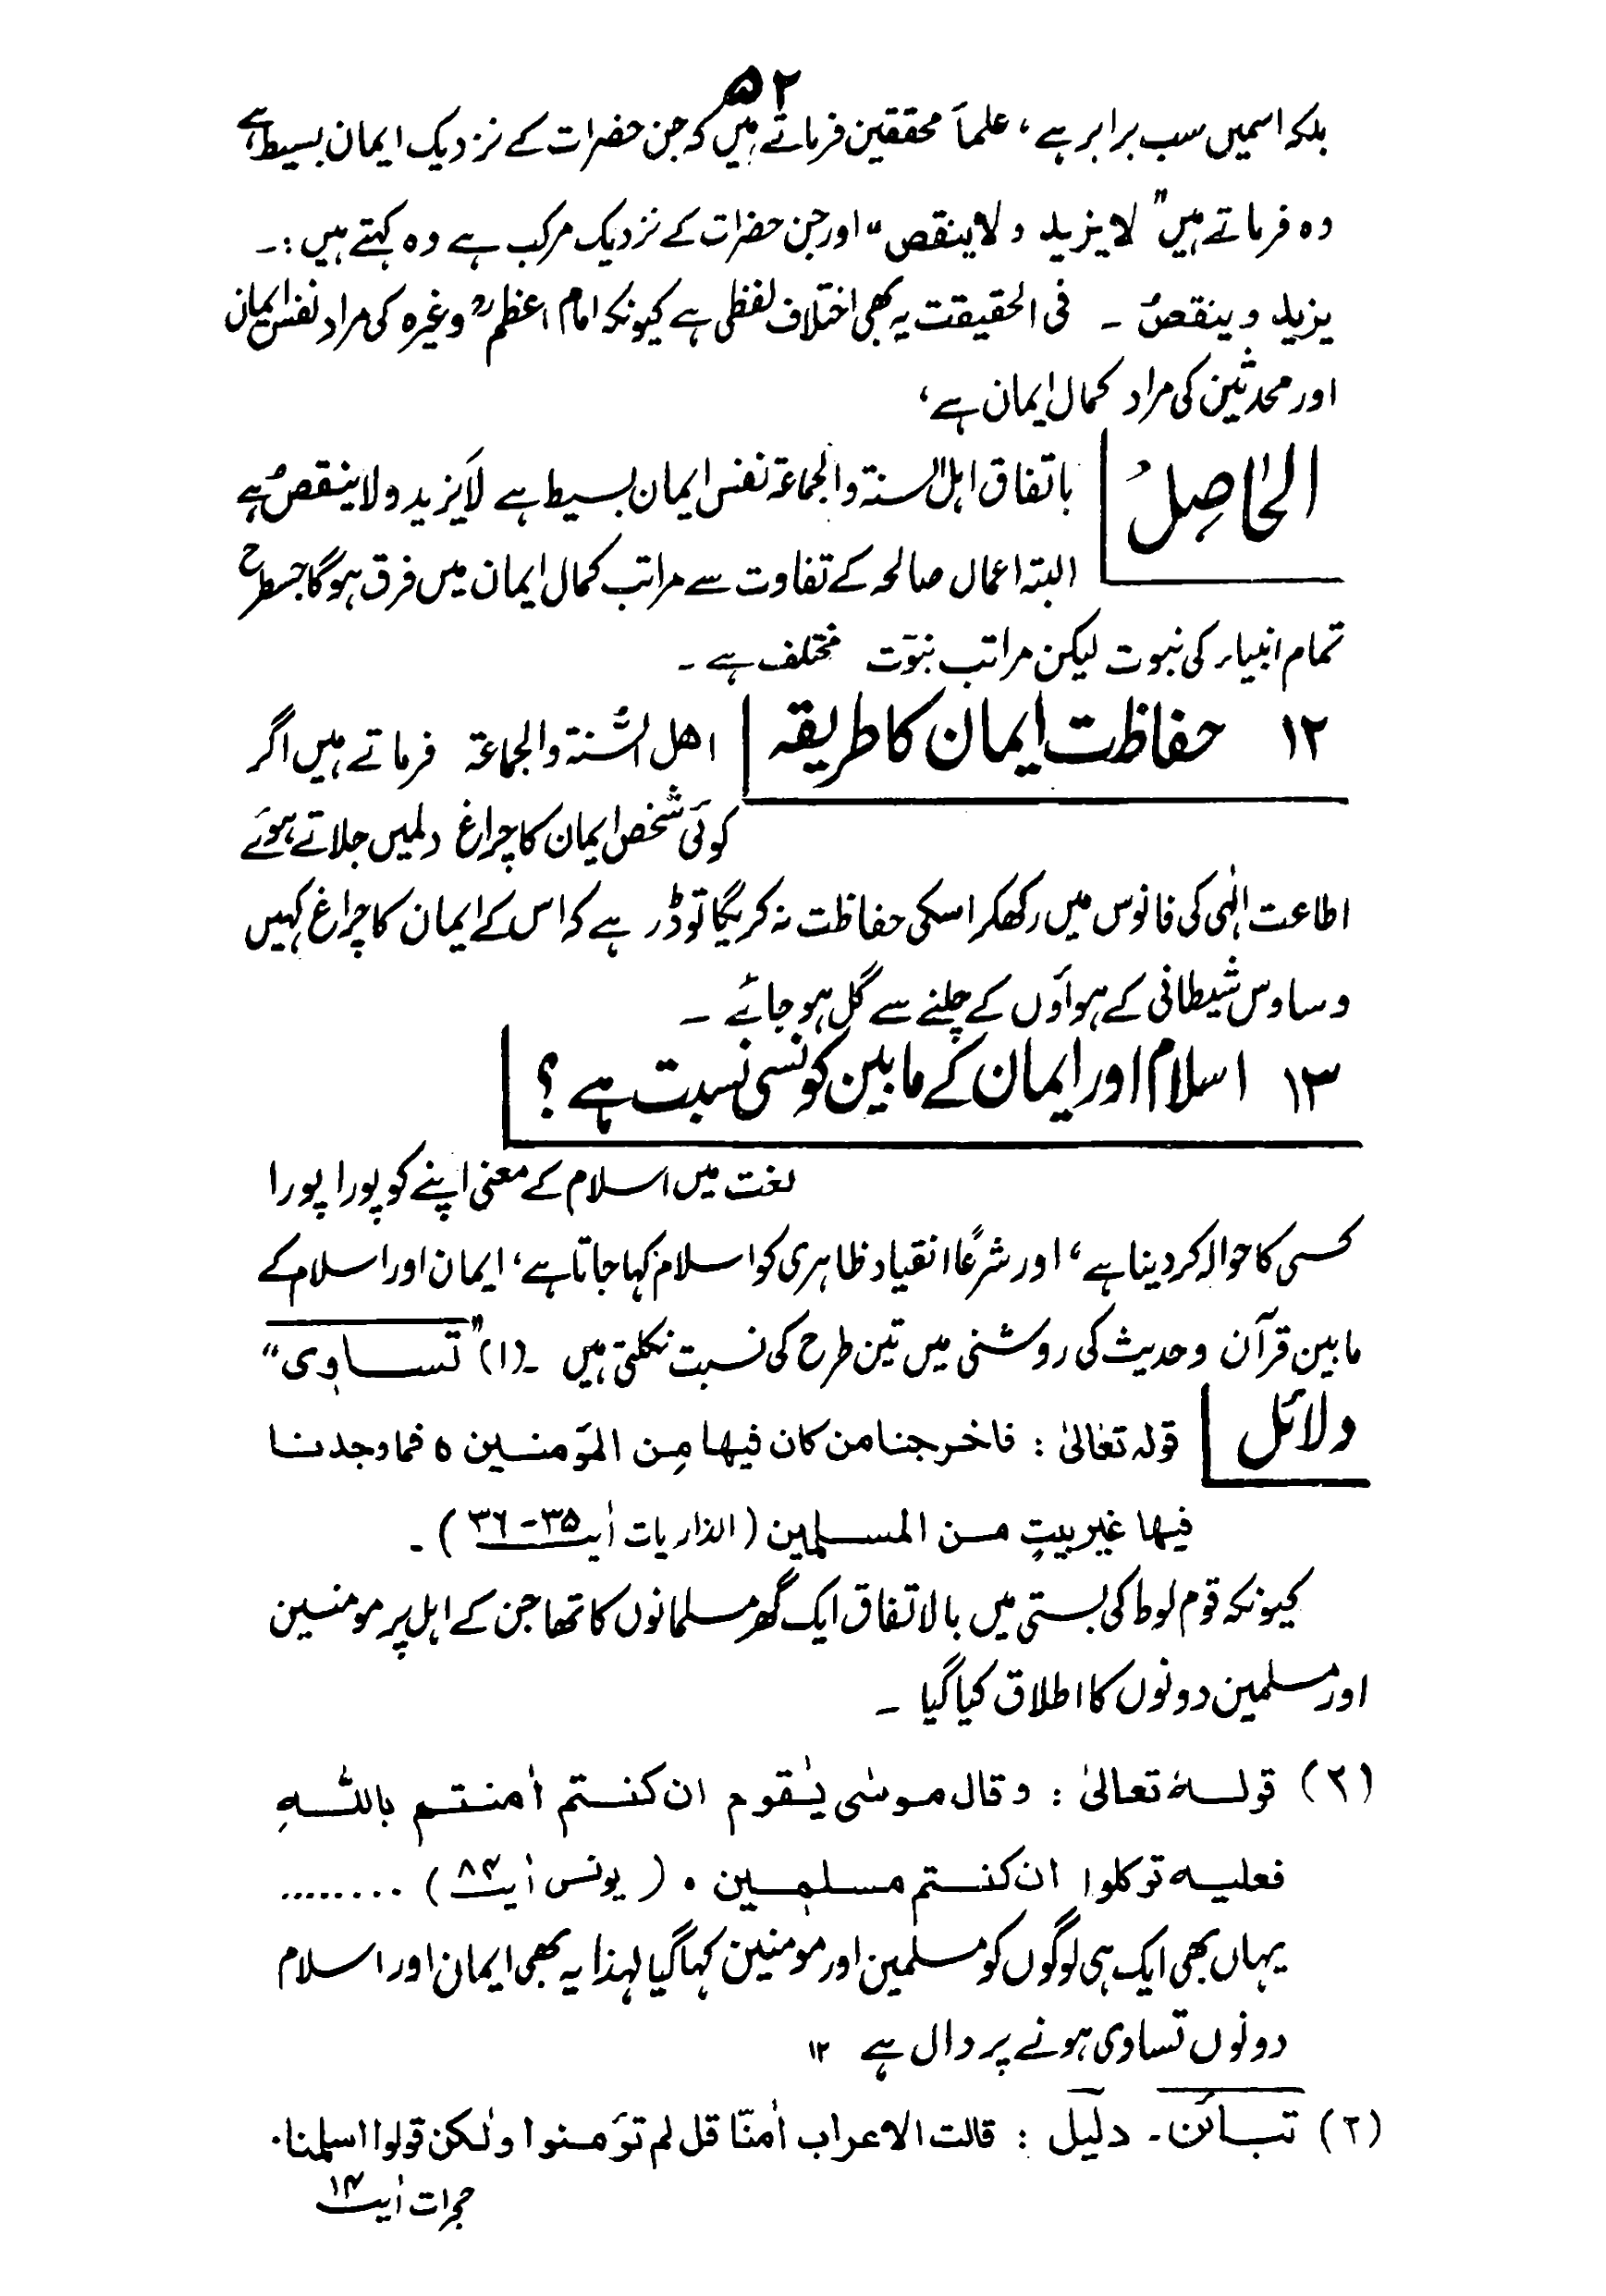 ۵۲
بلکہ اسمیں سب برابر ہے، علمأ محققین فرماتے ہیں کہ جن حضرات کے نزدیک ایمان بسیط ہے
وہ فرماتے ہیں "لا یزید ولا ینقص" اور جن حضرات کے نزدیک مرکب ہے وہ کہتے ہیں :۔
یزید وینقصُ ۔ فی الحقیقت یہ بھی اختلاف لفظی ہے کیونکہ امام اعظمؒ وغیرہ کی مراد نفس ایمان
اور محدثین کی مراد کمال ایمان ہے،
الحاصلُ
باتفاق اہل السنۃ والجماعۃ نفس ایمان بسیط ہے لَا یزید ولا ینقصُ ہے
البتہ اعمال صالحہ کے تفاوت سے مراتب کمال ایمان میں فرق ہوگا جسطرح
تمام انبیاء کی نبوت لیکن مراتب نبوّت مختلف ہے ۔
۱۲ حفاظت ایمان کا طریقہ
اھل السُّنۃ والجماعۃ فرماتے ہیں اگر
کوئی شخص ایمان کا چراغ دلمیں جلاتے ہوئے
اطاعت الٰہی کی فانوس میں رکھکر اسکی حفاظت نہ کریگا تو ڈر ہے کہ اس کے ایمان کا چراغ کہیں
وساوس شیطانی کے ہواؤں کے چلنے سے گل ہو جائے ۔
۱۳ اسلام اور ایمان کے مابین کونسی نسبت ہے ؟
لغت میں اسلام کے معنی اپنے کو پورا پورا
کسی کا حوالہ کر دینا ہے، اور شرعًا انقیاد ظاہری کو اسلام کہا جاتا ہے، ایمان اور اسلام کے
مابین قرآن وحدیث کی روشنی میں تین طرح کی نسبت نکلتی ہیں ۔(۱) "تساوی"
دلائل
قولہ تعٰالیٰ : فاخرجنا من کان فیھا مِن المؤمنین ہ فما وجدنا
فیھا غیر بیتٍ من المسلمین (الذاریات اٰیت ۳۵-۳۶) ۔
کیونکہ قوم لوط کی بستی میں بالاتفاق ایک گھر مسلمانوں کا تھا جن کے اہل پر مومنین
اور مسلمین دونوں کا اطلاق کیا گیا ۔
(۲) قولہٗ تعالیٰ : وقال موسٰی یٰقوم ان کنتم اٰمنتم باللّٰہِ
فعلیہ توکلوا ان کنتم مسلمین ۰ (یونس اٰیت ۸۴) ........
یہاں بھی ایک ہی لوگوں کو مسلمین اور مؤمنین کہا گیا لہذا یہ بھی ایمان اور اسلام
دونوں تساوی ہونے پر دال ہے ۱۲
(۲) تبائن ۔ دلیل : قالت الاعراب اٰمنّا قل لم تؤمنوا ولٰکن قولوا اسلمنا ۰
حجرات اٰیت ۱۴